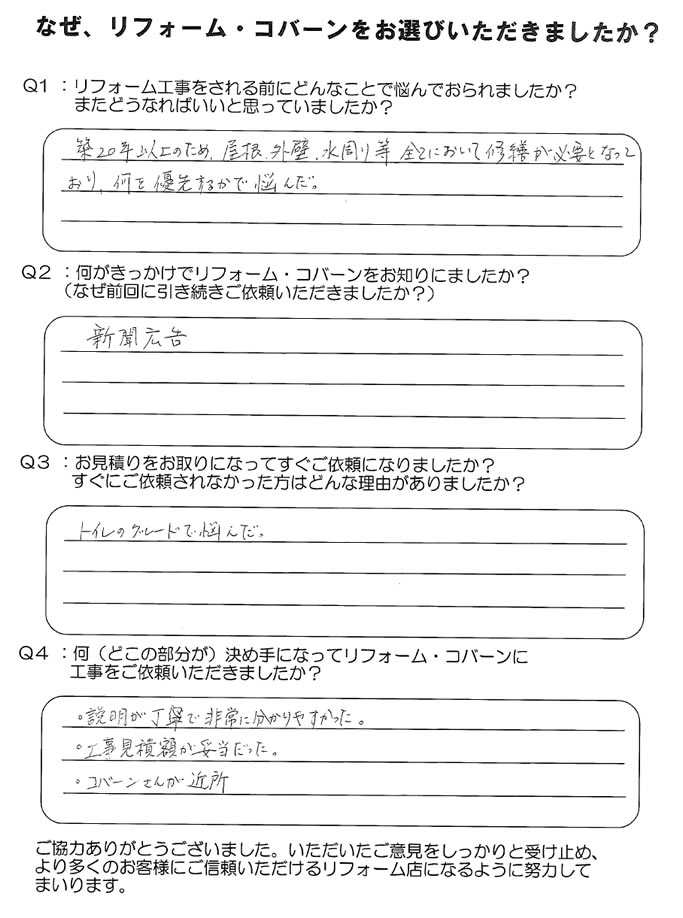 なぜ、リフォーム・コバーンをお選びいただきましたか？
Q1 ：リフォーム工事をされる前にどんなことで悩んでおられましたか？
またどうなればいいと思っていましたか？
築20年以上のため、屋根、外壁、水周り等 全てにおいて修繕が必要となって
おり、何を優先するかで悩んだ。
Q2 ：何がきっかけでリフォーム・コバーンをお知りにましたか？
（なぜ前回に引き続きご依頼いただきましたか？）
新聞広告
Q3 ：お見積りをお取りになってすぐご依頼になりましたか？
すぐにご依頼されなかった方はどんな理由がありましたか？
トイレのグレードで悩んだ。
Q4 ：何（どこの部分が）決め手になってリフォーム・コバーンに
工事をご依頼いただきましたか？
・説明が丁寧で非常に分かりやすかった。
・工事見積額が妥当だった。
・コバーンさんが近所
ご協力ありがとうございました。いただいたご意見をしっかりと受け止め、
より多くのお客様にご信頼いただけるリフォーム店になるように努力して
まいります。